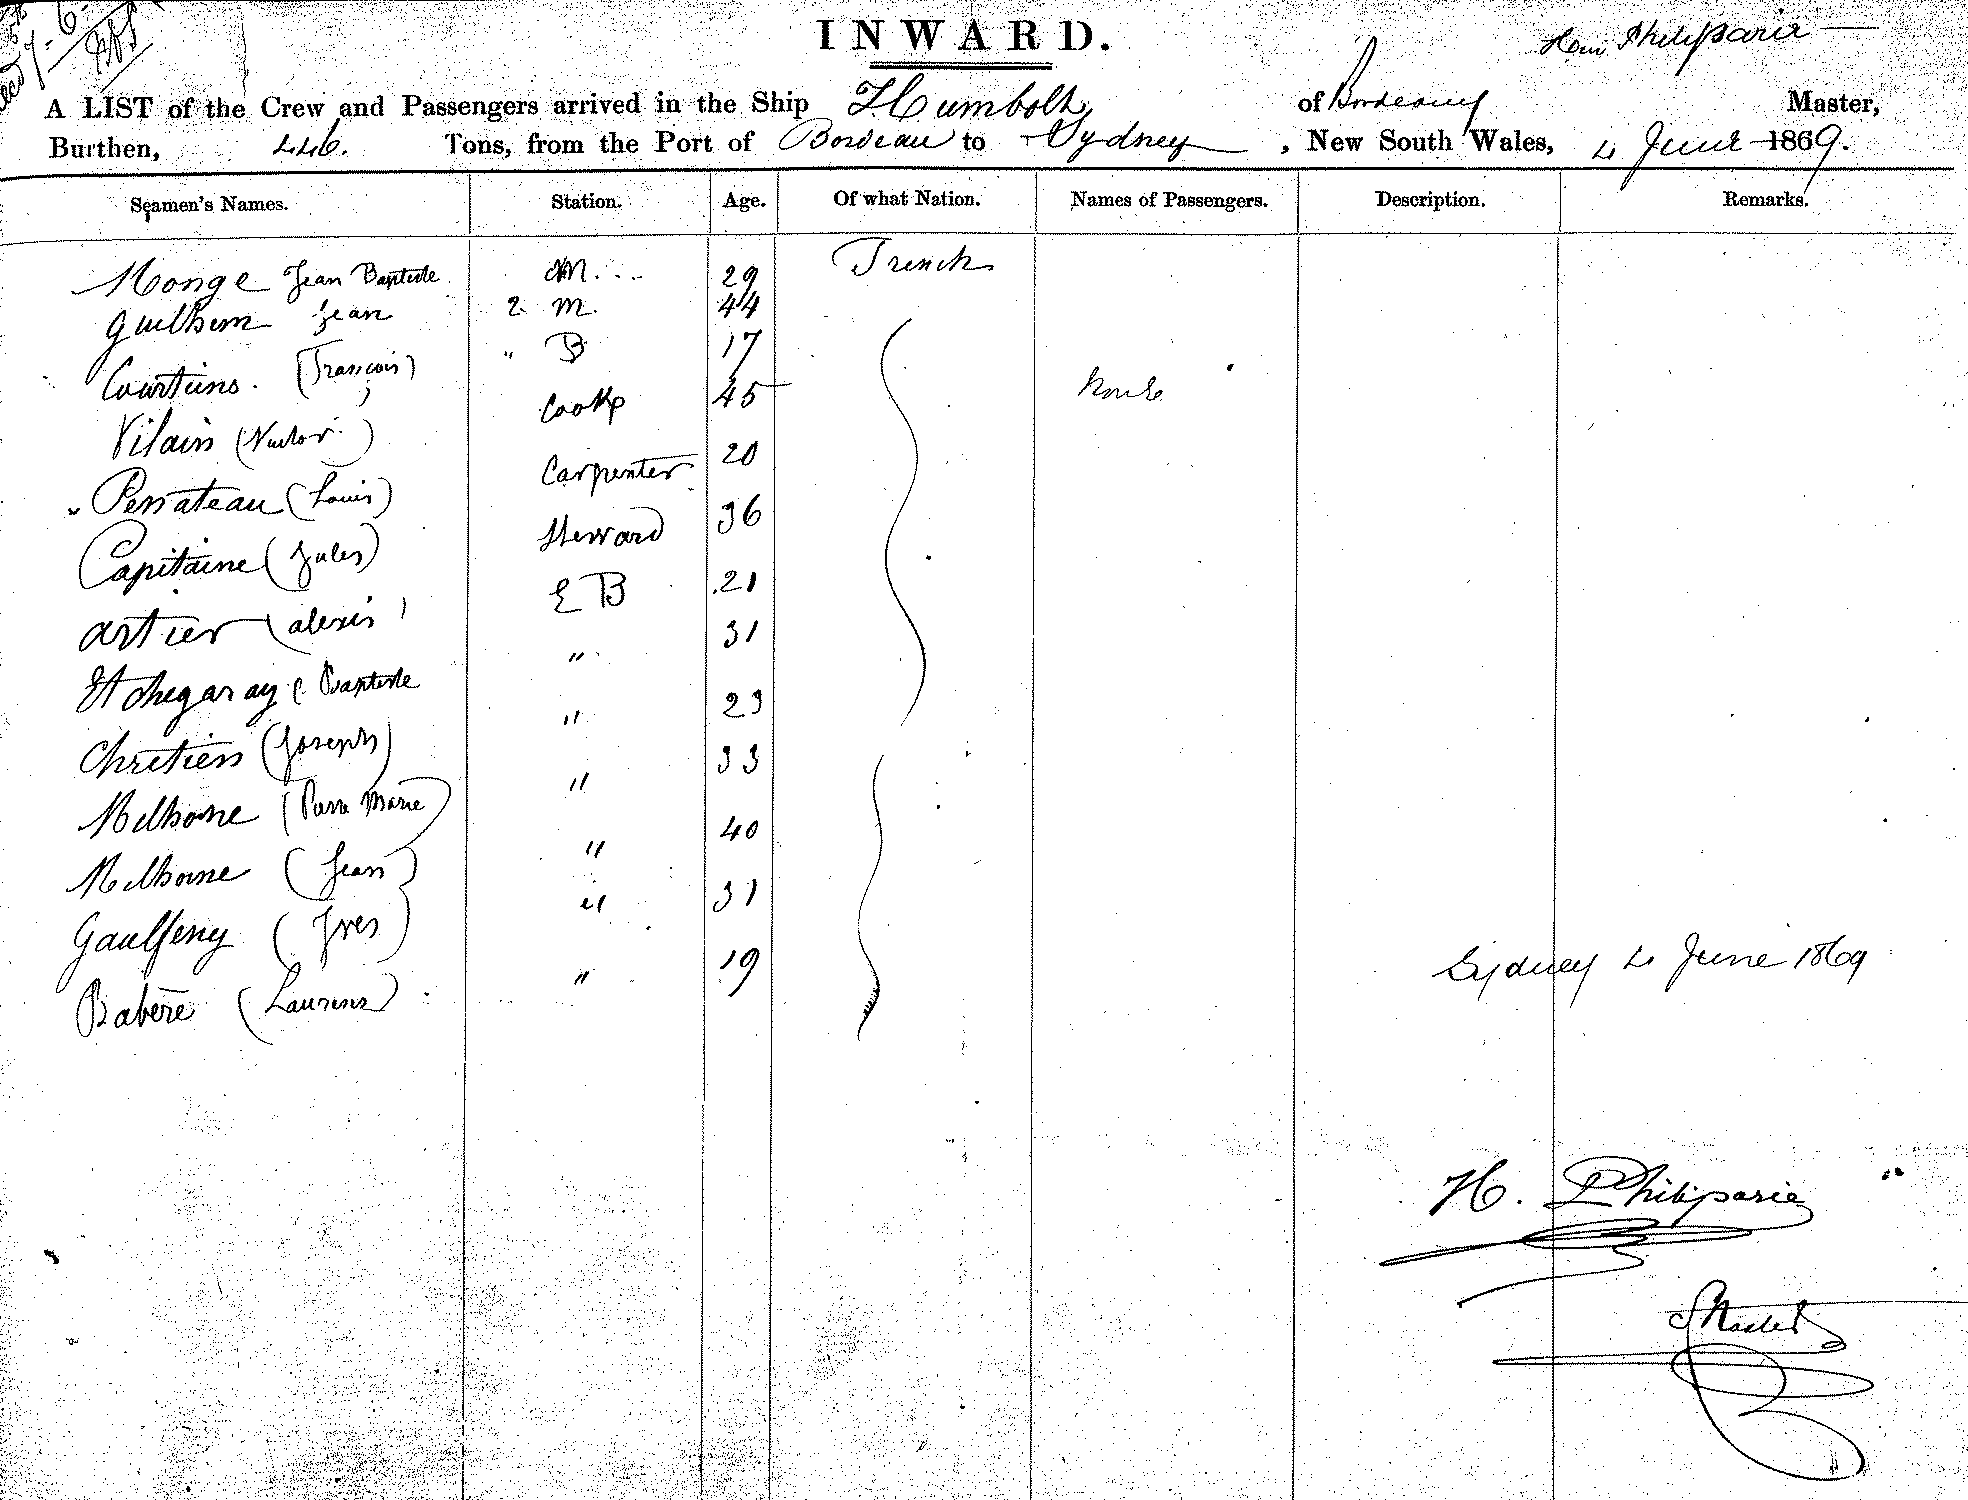 INWARD.
Philiparie
A LIST of the Crew and Passengers arrived in the Ship Humbolt of Bordeaux Master,
Burthen, 446. Tons, from the Port of Bordeau to Sydney, New South Wales, 4 June 1869.
Seamen's Names. Station. Age. Of what Nation. Names of Passengers. Description. Remarks.
Monge Jean Baptiste M. 29 French
Guilhem Jean 2 M. 44
Courtiens. (François) " B 17
Vilain Cook 45 None
Perrateau (Louis) Carpenter 20
Capitaine (Jules) Steward 36
Artier (alexis) E B 21
Etchegaray (Baptiste " 31
Chretien (Joseph) " 23
Melhorne (Pierre Marie) " 33
Melhorne (Jean) " 40
(Yves) " 31
Babère (Laurens) " 19
Sydney 4 June 1869
H. Philiparie
Master